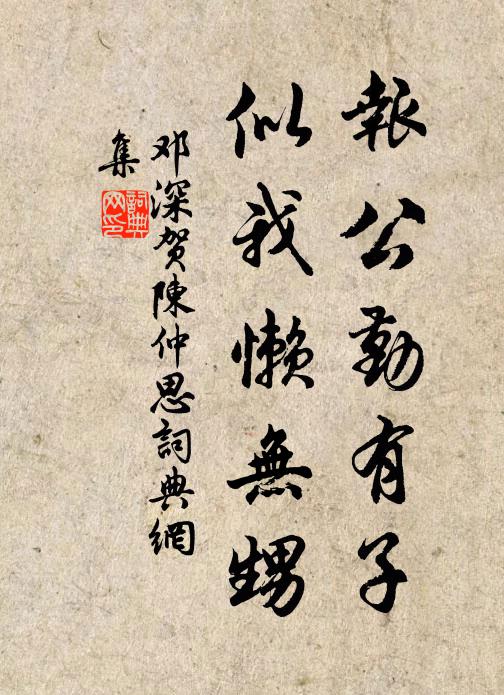 報公勤有子
似我懶無甥
邓深贺陳仲思詞典網
集
詞典
网印